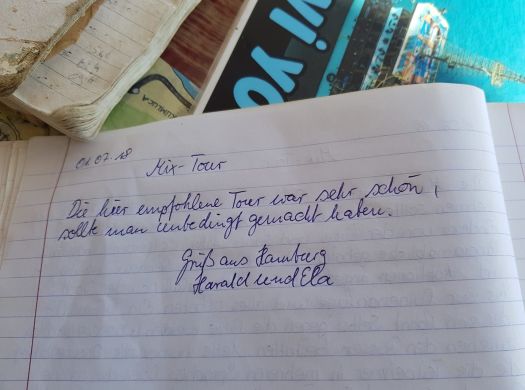 vi yo
KUMLUCA
01.07.18
Mix-Tour
Die hier empfohlene Tour war sehr schön,
sollte man unbedingt gemacht haben.
Gruß aus Hamburg
Harald und Ela